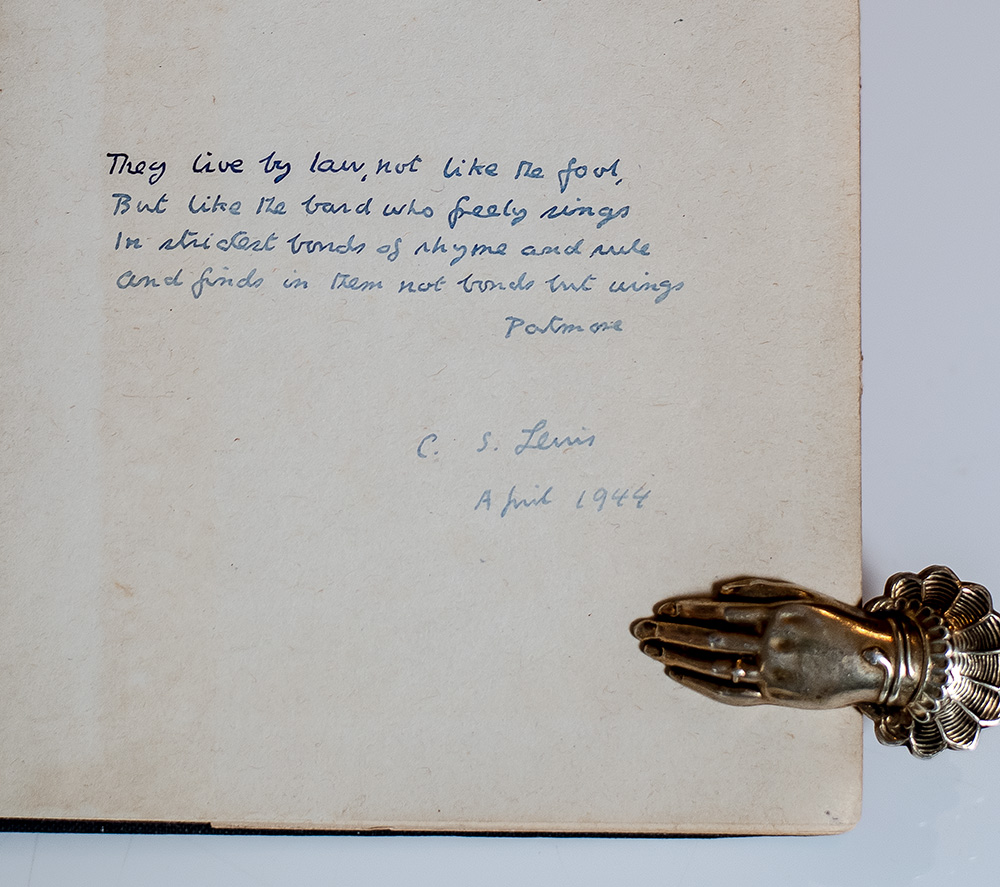 They live by law, not like the fool,
But like the bard who freely sings
In strictest bonds of rhyme and rule
and finds in them not bonds but wings
Patmore
C. S. Lewis
April 1944